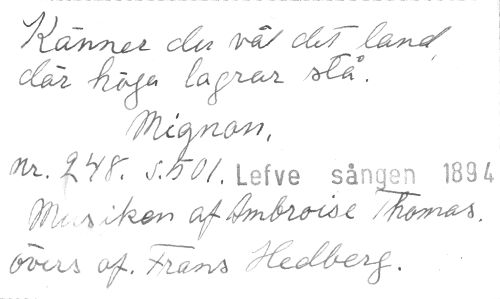 Känner du väl det land,
där höga lagrar stå.
Mignon.
nr. 248. s.501. Lefve sången 1894
Musiken af Ambroise Thomas.
övers af. Frans Hedberg.